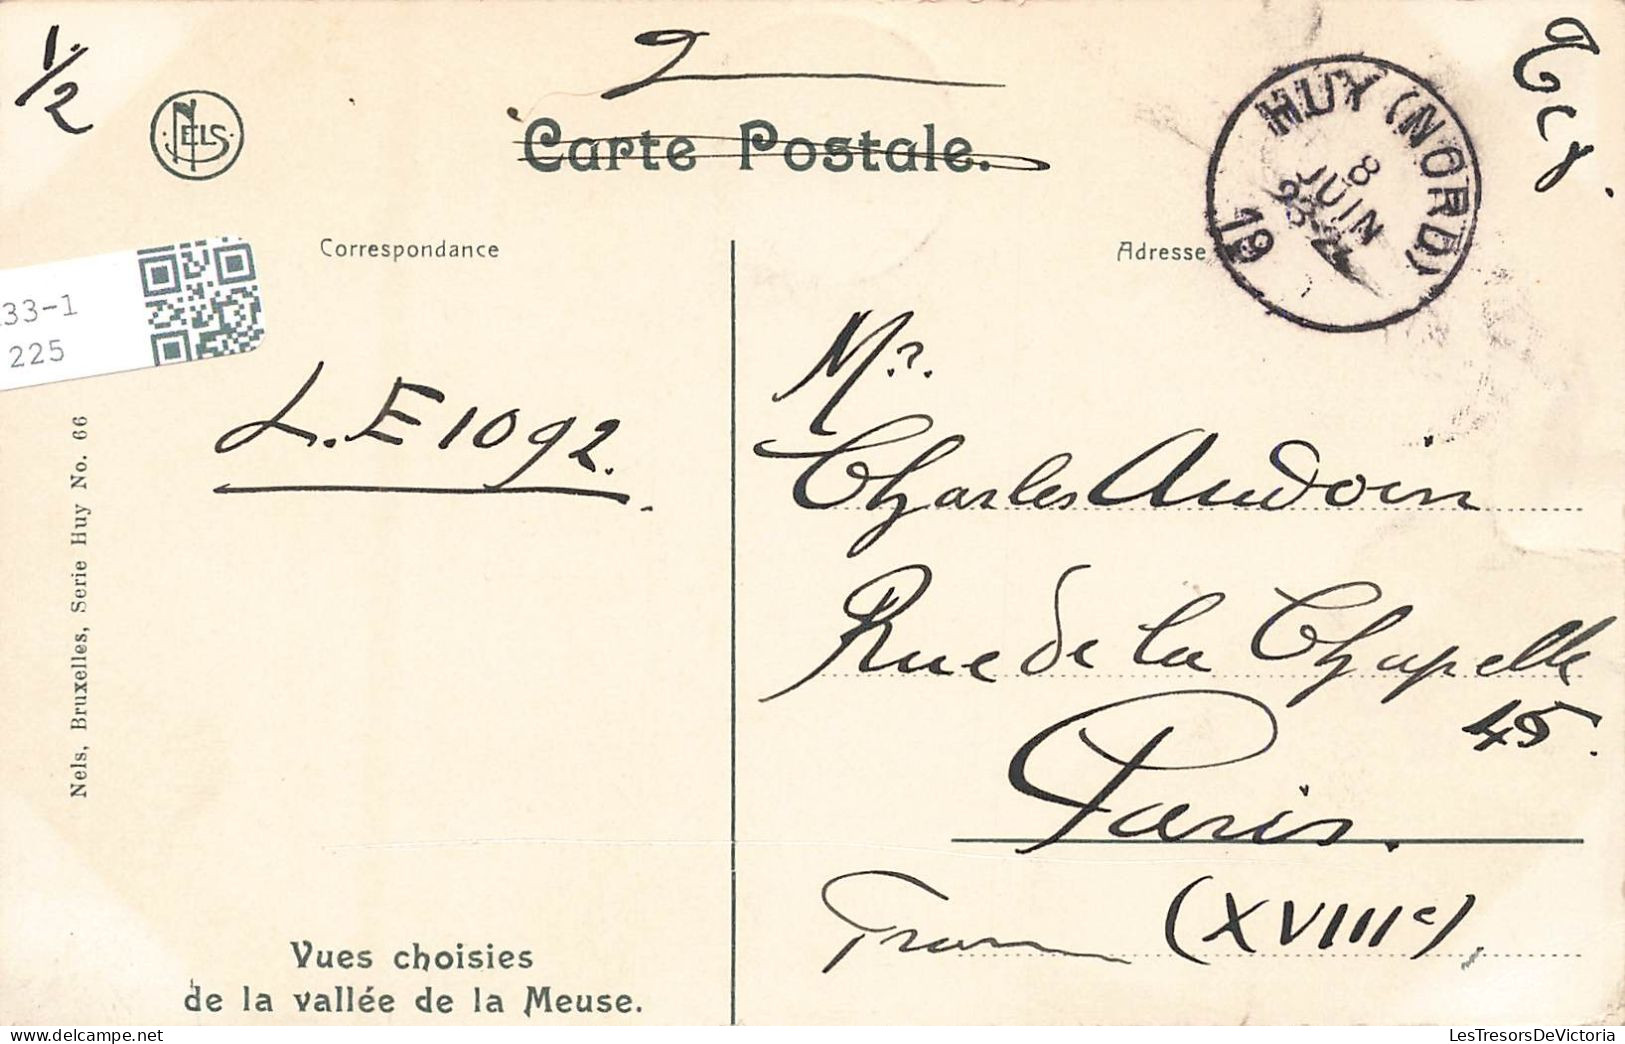 1/2
NELS
Carte Postale.
HUY (NORD)
8
JUIN
19
Correspondance
Adresse
33-1
225
L.E 1092.
Mr.
Charles Audoin
Rue de la Chapelle
45.
Paris.
(XVIIIe)
Nels, Bruxelles, Serie Huy No. 66
Vues choisies
de la vallée de la Meuse.
LesTresorsDeVictoria